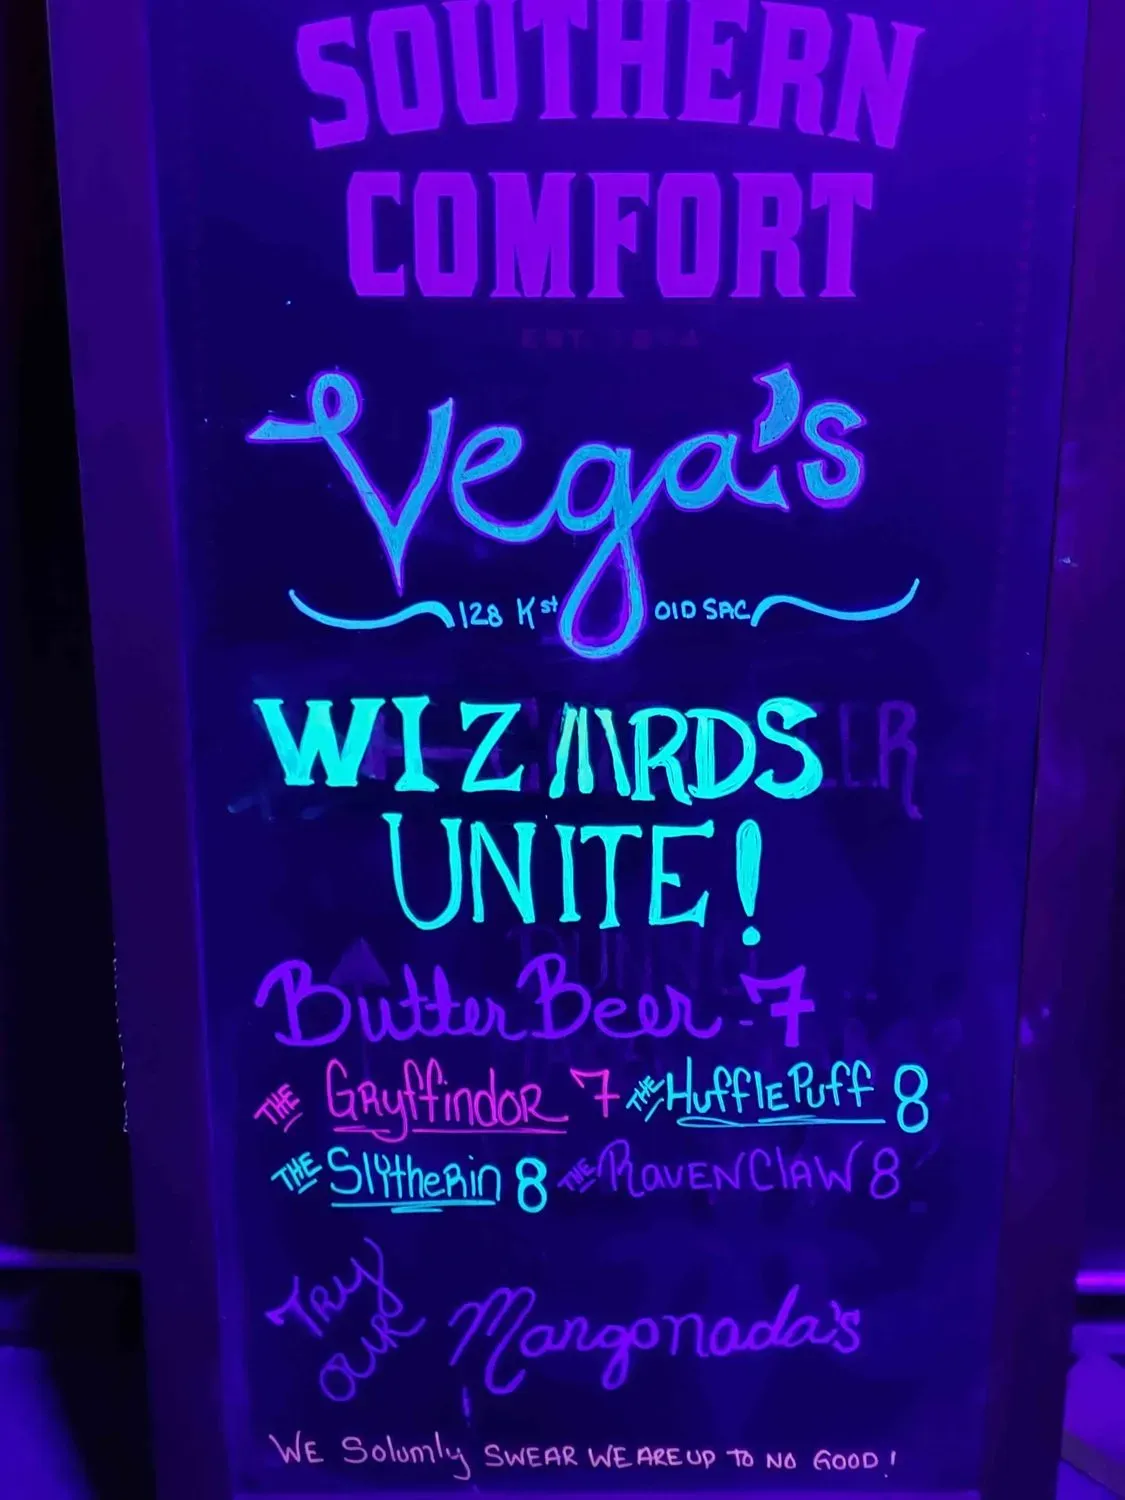 SOUTHERN
COMFORT
Vega's
128 K st OlD SAC
WIZARDS
UNITE!
ButterBeer - 7
THE GRyffindoR 7 THE HufflePuff 8
THE SlytheRin 8 THE RavENClAW 8
TRY
OUR Mangonada's
WE Solumly SWEAR WE ARE UP TO NO GOOD!